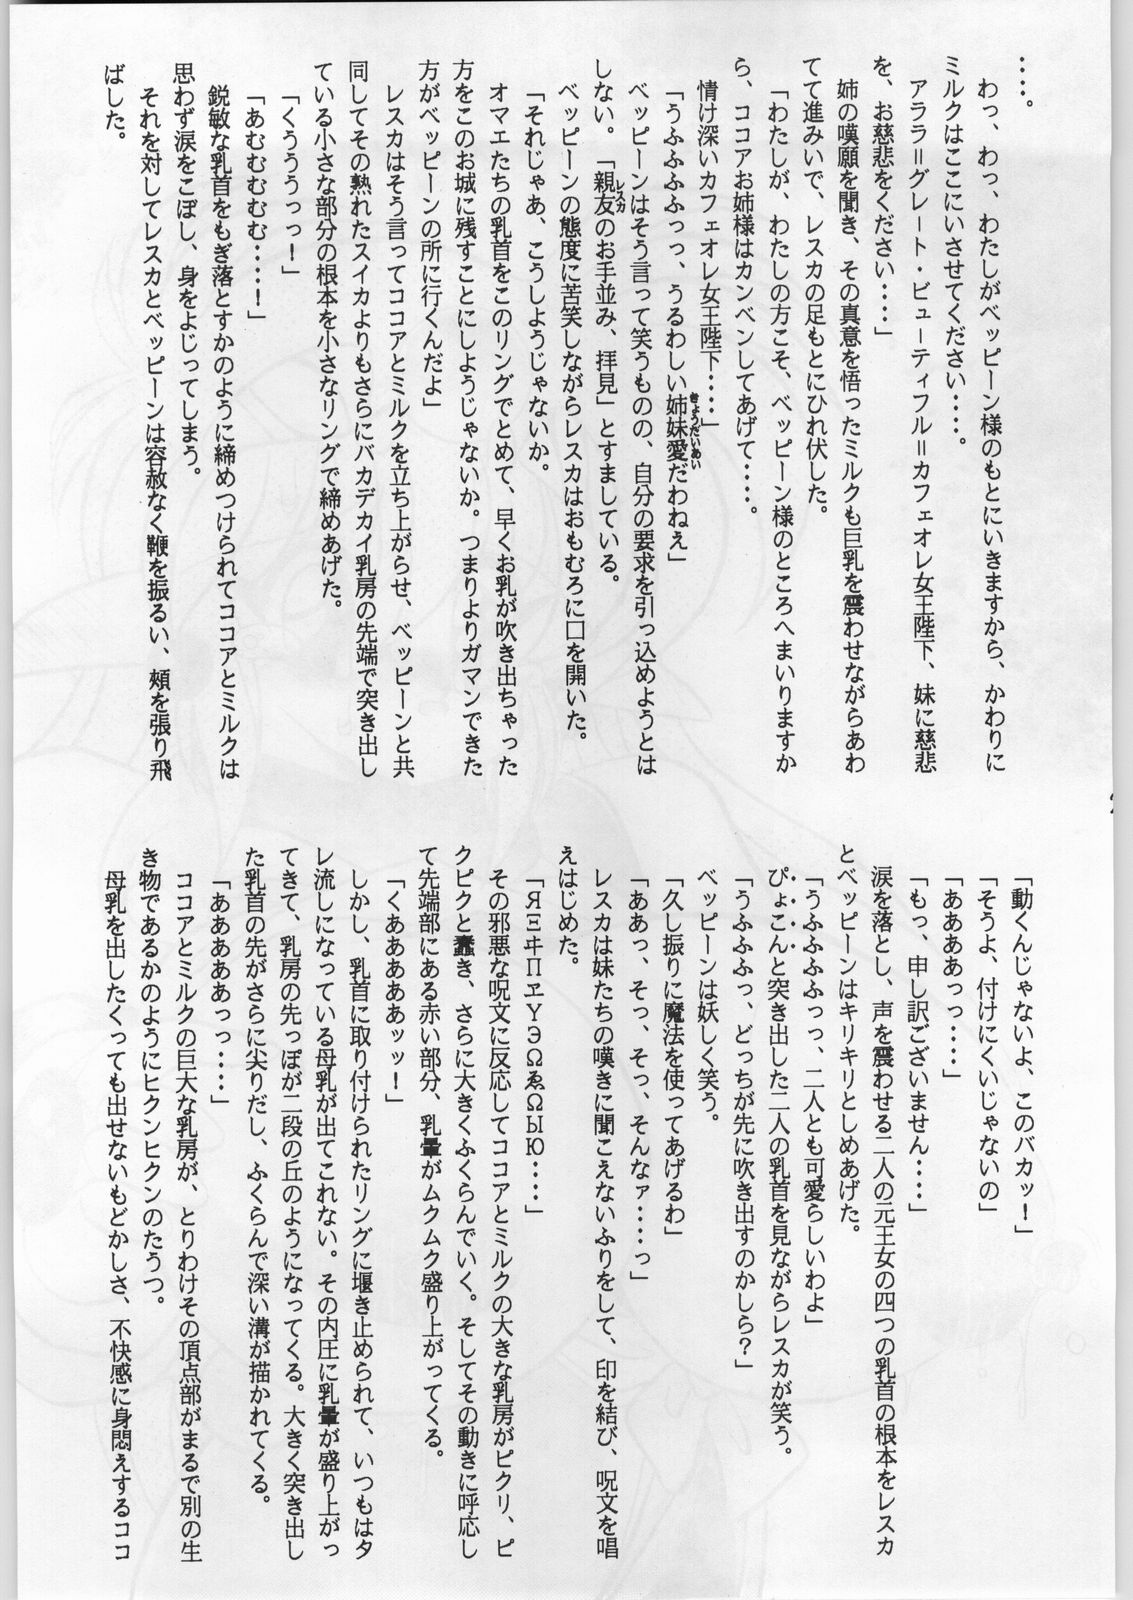 ‥‥。
わっ、わっ、わたしがベッピーン様のもとにいきますから、かわりに
ミルクはここにいさせてください‥‥。
アララ＝グレート・ビューティフル＝カフェオレ女王陛下、妹に慈悲
を、お慈悲をください‥‥」
姉の嘆願を聞き、その真意を悟ったミルクも巨乳を震わせながらあわ
てて進みいで、レスカの足もとにひれ伏した。
「わたしが、わたしの方こそ、ベッピーン様のところへまいりますか
ら、ココアお姉様はカンベンしてあげて‥‥。
情け深いカフェオレ女王陛下‥‥」
「うふふふふっっ、うるわしい姉妹愛きょうだいあいだわねぇ」
ベッピーンはそう言って笑うものの、自分の要求を引っ込めようとは
しない。「親友レスカのお手並み、拝見」とすましている。
ベッピーンの態度に苦笑しながらレスカはおもむろに口を開いた。
「それじゃあ、こうしようじゃないか。
オマエたちの乳首をこのリングでとめて、早くお乳が吹き出ちゃった
方をこのお城に残すことにしようじゃないか。つまりよりガマンできた
方がベッピーンの所に行くんだよ」
レスカはそう言ってココアとミルクを立ち上がらせ、ベッピーンと共
同してその熟れたスイカよりもさらにバカデカイ乳房の先端で突き出し
ている小さな部分の根本を小さなリングで締めあげた。
「くうううっっ！」
「あむむむむむ‥‥！」
鋭敏な乳首をもぎ落とすかのように締めつけられてココアとミルクは
思わず涙をこぼし、身をよじってしまう。
それを対してレスカとベッピーンは容赦なく鞭を振るい、頬を張り飛
ばした。
「動くんじゃないよ、このバカッ！」
「そうよ、付けにくいじゃないの」
「ああああっっ‥‥」
「もっ、申し訳ございません‥‥」
涙を落とし、声を震わせる二人の元王女の四つの乳首の根本をレスカ
とベッピーンはキリキリとしめあげた。
「うふふふふっっ、二人とも可愛らしいわよ」
ぴょこんと突き出した二人の乳首を見ながらレスカが笑う。
「うふふふっ、どっちが先に吹き出すのかしら？」
ベッピーンは妖しく笑う。
「久し振りに魔法を使ってあげるわ」
「ああっ、そっ、そっ、そんなァ‥‥っ」
レスカは妹たちの嘆きに聞こえないふりをして、印を結び、呪文を唱
えはじめた。
「ЯΞヰΠヱΥЭΩゑΩЫЮ‥‥」
その邪悪な呪文に反応してココアとミルクの大きな乳房がピクリ、ピ
クピクと蠢き、さらに大きくふくらんでいく。そしてその動きに呼応し
て先端部にある赤い部分、乳暈がムクムク盛り上がってくる。
「くあああああッッ！」
しかし、乳首に取り付けられたリングに堰き止められて、いつもはタ
レ流しになっている母乳が出てこれない。その内圧に乳暈が盛り上がっ
てきて、乳房の先っぽが二段の丘のようになってくる。大きく突き出し
た乳首の先がさらに尖りだし、ふくらんで深い溝が描かれてくる。
「ああああああっっ‥‥」
ココアとミルクの巨大な乳房が、とりわけその頂点部がまるで別の生
き物であるかのようにヒクンヒクンのたうつ。
母乳を出したくっても出せないもどかしさ、不快感に身悶えするココ